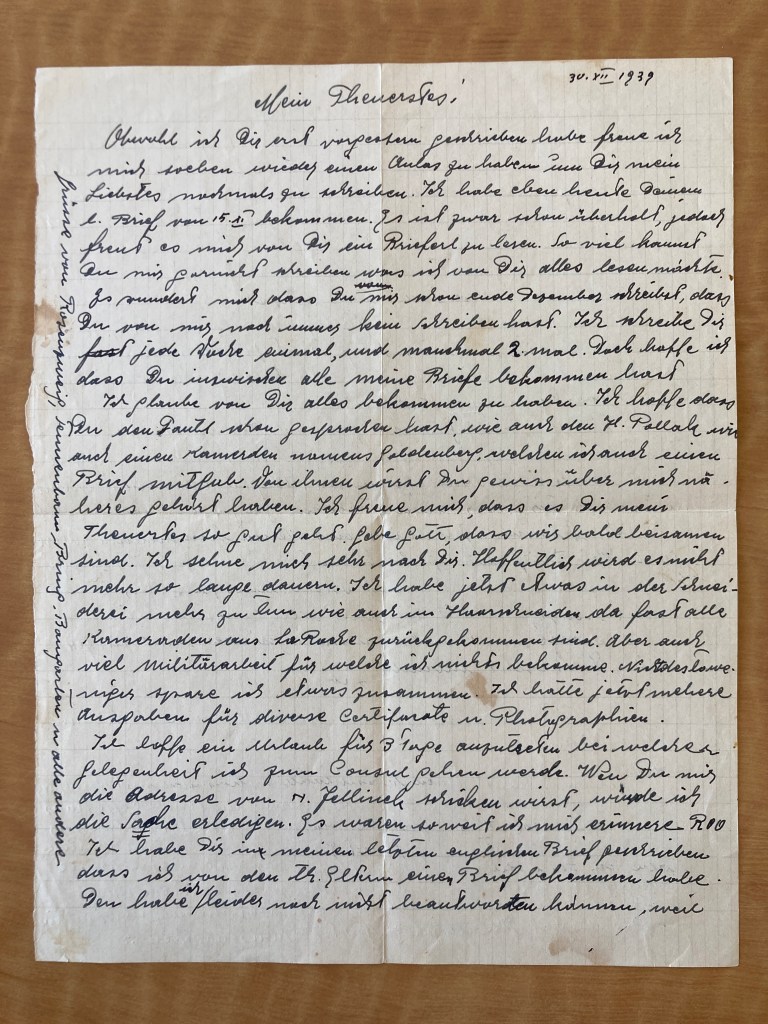 30. XII 1939
Mein Theuerstes!
Obwohl ich Dir erst vorgestern geschrieben habe freue ich
mich soeben wieder einen Anlas zu haben um Dir mein
Liebstes nochmals zu schreiben. Ich habe eben heute Deinen
l. Brief von 15. XI bekommen. Es ist zwar schon überholt, jedoch
freut es mich von Dir ein Brieferl zu lesen. So viel kannst
Du mir garnicht schreiben was ich von Dir alles lesen möchte.
Es wundert mich dass Du mir schon ende Dezember schreibst, dass
Du von mir noch immer kein Schreiben hast. Ich schreibe Dir
fast jede Woche einmal, und manchmal 2 mal. Doch hoffe ich
dass Du inzwischen alle meine Briefe bekommen hast
Ich glaube von Dir alles bekommen zu haben. Ich hoffe dass
Du den Fantl schon gesprochen hast, wie auch den H. Pollak, wie
auch einen Kamerden namens Goldenberg, welchen ich auch einen
Brief mitgab. Von ihnen wirst Du gewiss über mich nä-
heres gehört haben. Ich freue mich, dass es Dir mein
Theuerstes so gut geht. Gebe Gott, dass wir bald beisamen
sind. Ich sehne mich sehr nach Dir. Hoffentlich wird es nicht
mehr so lange dauern. Ich habe jetzt etwas in der Schnei-
derei mehr zu tun wie auch im Haarschneiden da fast alle
Kameraden aus La Roche zurückgekommen sind. Aber auch
viel Militärarbeit für welche ich nichts bekomme. Nichtdestowe-
niger spare ich etwas zusammen. Ich hätte jetzt mehere
Ausgaben für diverse Certificate u. Photographien.
Ich hoffe ein Urlaub für 3 Tage anzutreten bei welcher
Gelegenheit ich zum Consul gehen werde. Wen Du mir
die Adresse von H. Jellinek schicken wirst, würde ich
die Sache erledigen. Es waren soweit ich mich erinnere R 00
Ich habe Dir in meinen letzten englischen Brief geschrieben
dass ich von den th. Eltern einen Brief bekommen habe.
Den habe ich leider noch nicht beantworten können, weil
Grüsse von Rosenzweig, Tennenbaum, Baumgarten u alle andere